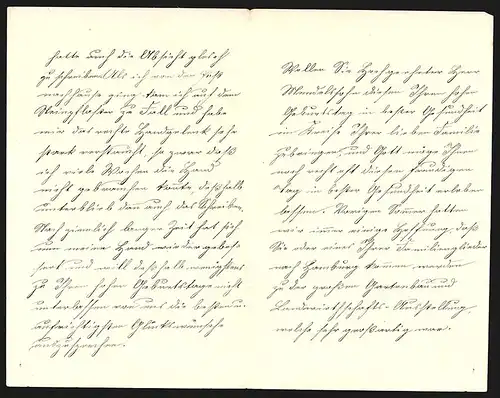 hatte auch die Absicht gleich
zu schreiben. Als ich von der Post
nachhause ging, kam ich auf dem
Steinpflaster zu Fall und habe
mir das rechte Handgelenk sehr
stark verstaucht, so zwar daß
ich viele Wochen die Hand
nicht gebrauchen konnte, deßhalb
unterblieb dann auch das Schreiben.
Nach ziemlich langer Zeit hat sich
nun meine Hand wieder gebes-
sert und will deßhalb wenigstens
zu Ihrem hohen Geburtstage nicht
unterlassen die besten u.
aufrichtigsten Glückwünsche
auszusprechen.
Wollen Sie Hochgeehrter Herr
Mendelssohn diesen Ihren hohen
Geburtstag in bester Gesundheit
im Kreise Ihrer lieben Familie
zubringen, und Gott möge Ihnen
noch recht oft diesen freudigen
Tag in bester Gesundheit erleben
lassen. Vorigen Sommer hatten
wir immer einige Hoffnung, daß
Sie oder einer Ihrer Familienglieder
nach Hamburg kommen werden
zu der großen Gartenbau und
Landwirthschafts-Ausstellung,
welche sehr großartig war.